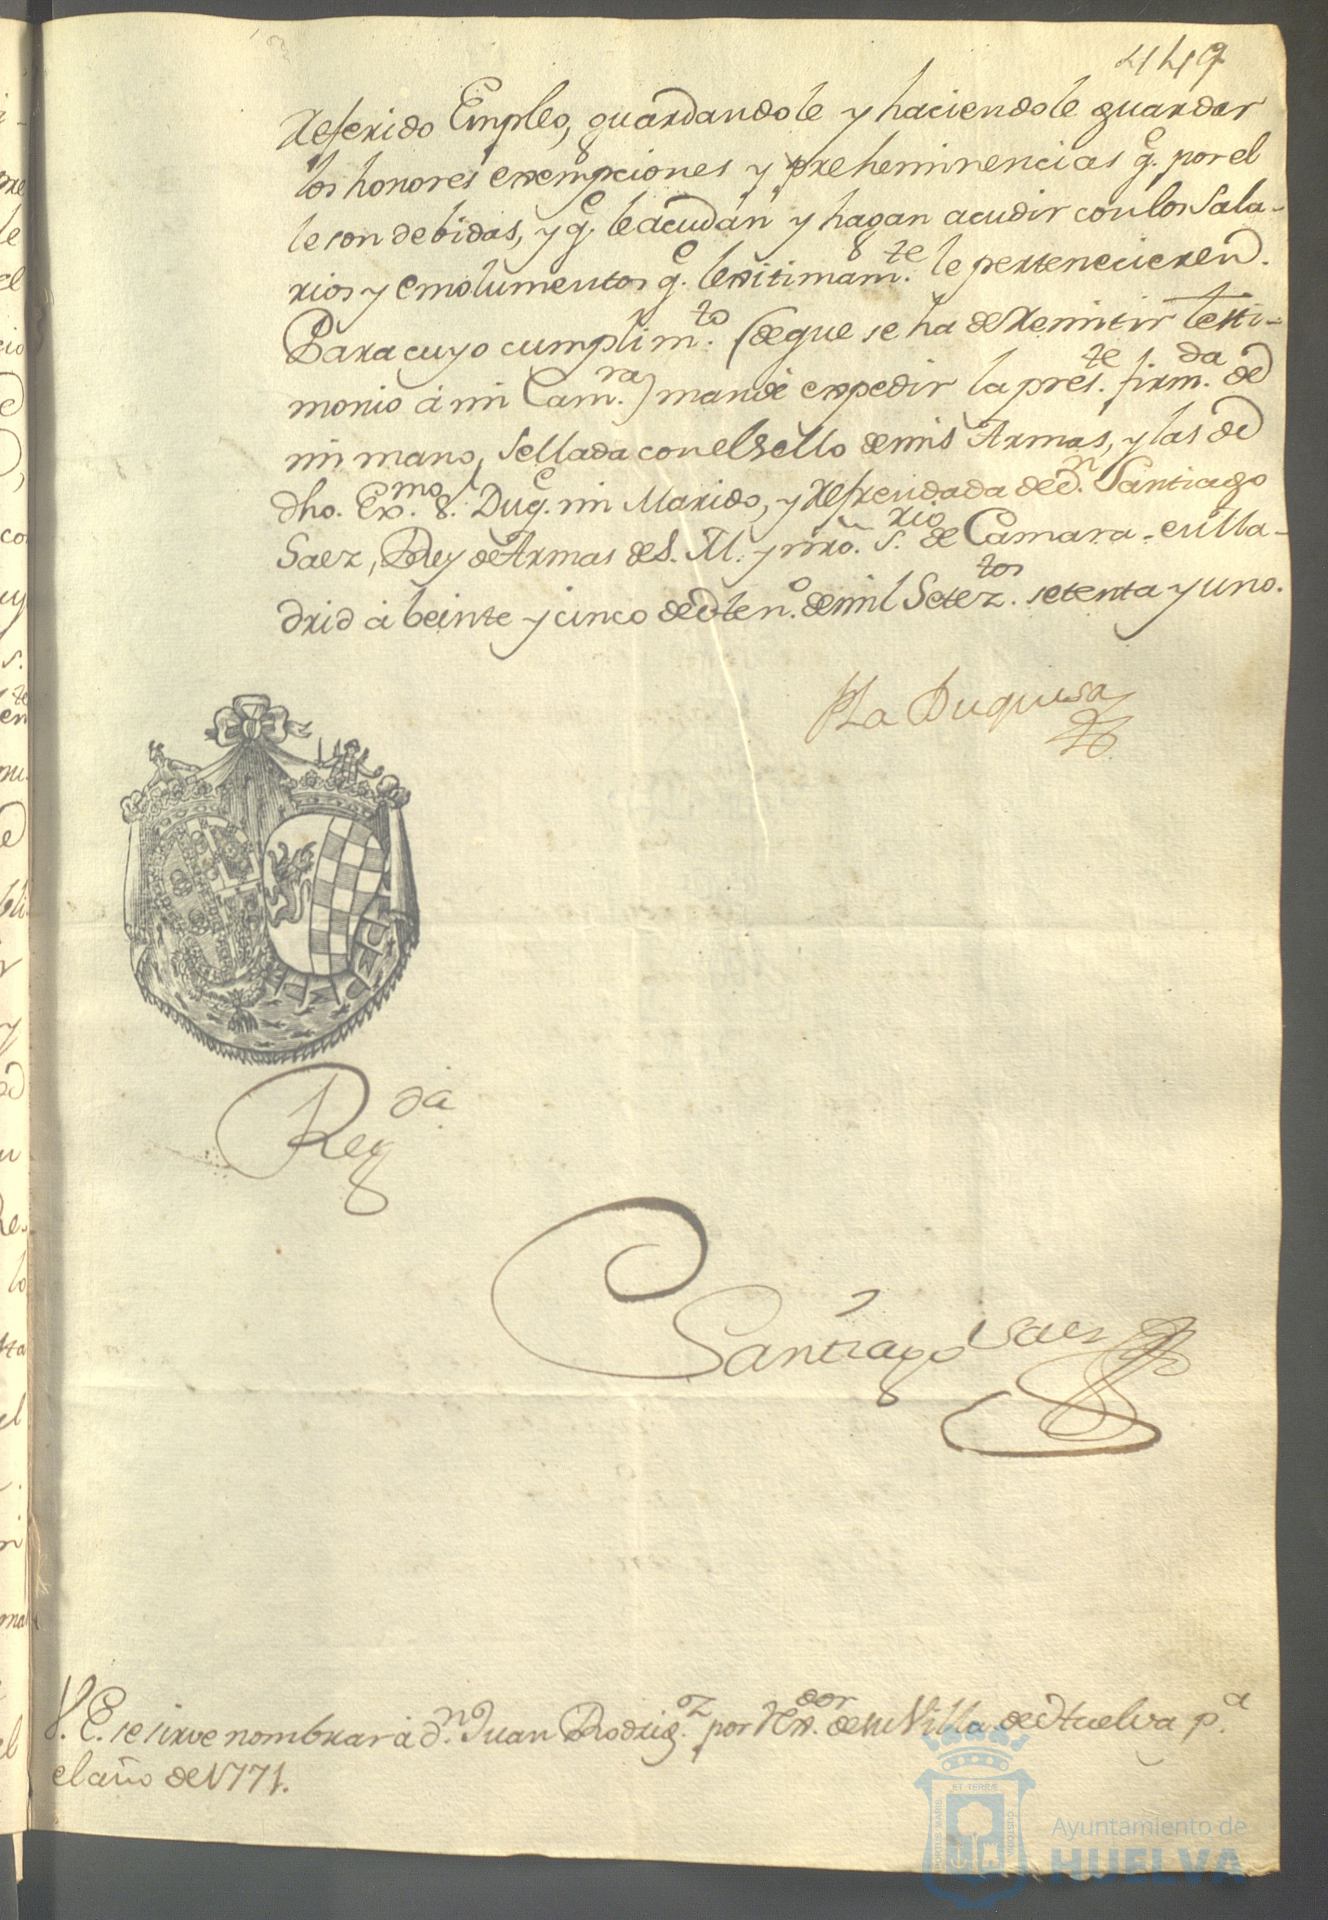 449
referido Empleo, guardandole y haciendole guardar
los honores exempciones y preheminencias q.e por el
le son debidas, y q.e le acudan y hagan acudir con los Sala-
rios y emolumentos q.e lexitimam.te le pertenecieren.
Para cuyo cumplim.to (de que se ha de remitir testi-
monio á mi Cam.ra) mandé expedir la pres.te firm.da de
mi mano, sellada con el sello de mis Armas, y las de
dho. Ex.mo S. Duq.e mi Marido, y refrendada de d.n Santiago
Saez, Rey de Armas de S. M. y nrõ. S.rio de Camara. en Ma-
drid á beinte y cinco de En.o de mil Setez.tos setenta y uno.
La Duquesa
Reg.da
Santiago Saez
V. E. se sirve nombrar á d.n Juan Rodrig.z por Rex.dor de su Villa de Huelva p.a
el año de 1771.
PORTUS MARIS ET TERRÆ CUSTODIA
Ayuntamiento de
HUELVA